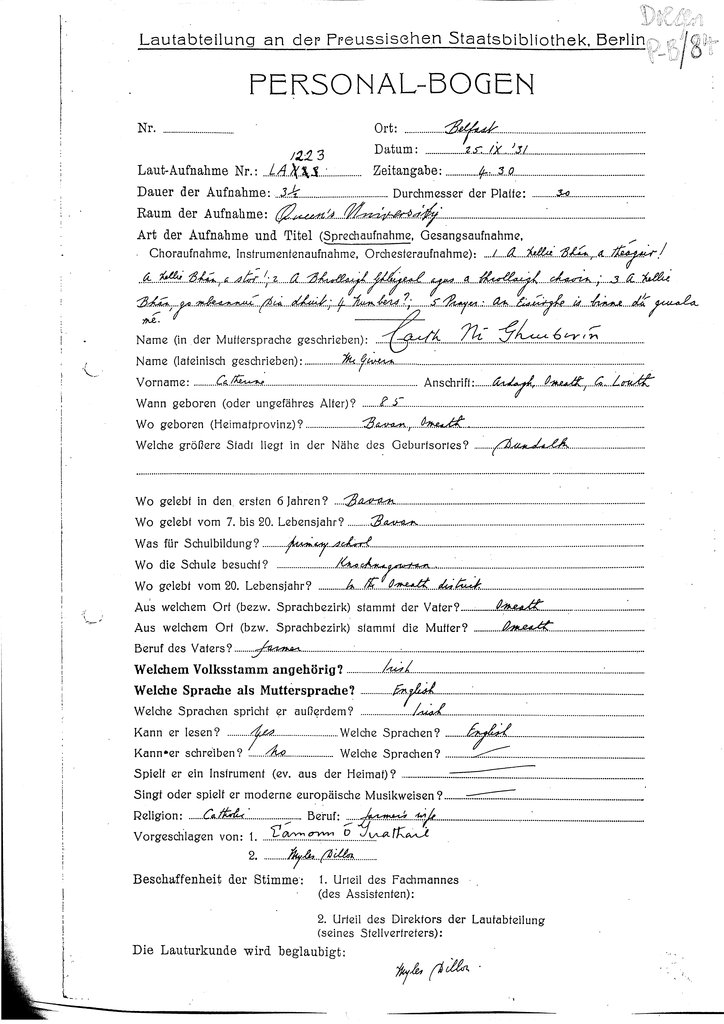 P-B/84
Lautabteilung an der Preussischen Staatsbibliothek, Berlin
PERSONAL-BOGEN
Nr. Ort: Belfast
Datum: 25. IX '31
1223
Laut-Aufnahme Nr.: LA Zeitangabe: 4.30
Dauer der Aufnahme: 3½ Durchmesser der Platte: 30
Raum der Aufnahme: Queen's University
Art der Aufnahme und Titel (Sprechaufnahme, Gesangsaufnahme,
Choraufnahme, Instrumentenaufnahme, Orchesteraufnahme): 1 A Nellie Bhán, a
A Nellie Bhán, a stór!; 2 A agus a ; 3 A Nellie
Bhán, go dhuit; 4 Numbers?; 5 Prayer: an is binne
mé.
Name (in der Muttersprache geschrieben): Ní
Name (lateinisch geschrieben): McGivern
Vorname: Catherine Anschrift: Ardagh, Omeath, Co. Louth
Wann geboren (oder ungefähres Alter)? 85
Wo geboren (Heimatprovinz)? Bavan, Omeath.
Welche größere Stadt liegt in der Nähe des Geburtsortes? Dundalk
Wo gelebt in den ersten 6 Jahren? Bavan
Wo gelebt vom 7. bis 20. Lebensjahr? Bavan
Was für Schulbildung? primary school
Wo die Schule besucht?
Wo gelebt vom 20. Lebensjahr? In the Omeath district
Aus welchem Ort (bezw. Sprachbezirk) stammt der Vater? Omeath
Aus welchem Ort (bezw. Sprachbezirk) stammt die Mutter? Omeath
Beruf des Vaters? farmer
Welchem Volksstamm angehörig? Irish
Welche Sprache als Muttersprache? English
Welche Sprachen spricht er außerdem? Irish
Kann er lesen? yes Welche Sprachen? English
Kann er schreiben? no Welche Sprachen? —
Spielt er ein Instrument (ev. aus der Heimat)? —
Singt oder spielt er moderne europäische Musikweisen? —
Religion: Catholic Beruf: farmer's wife
Vorgeschlagen von: 1. Éamonn Ó Tuathail
2. Myles Dillon
Beschaffenheit der Stimme: 1. Urteil des Fachmannes
(des Assistenten):
2. Urteil des Direktors der Lautabteilung
(seines Stellvertreters):
Die Lauturkunde wird beglaubigt:
Myles Dillon.